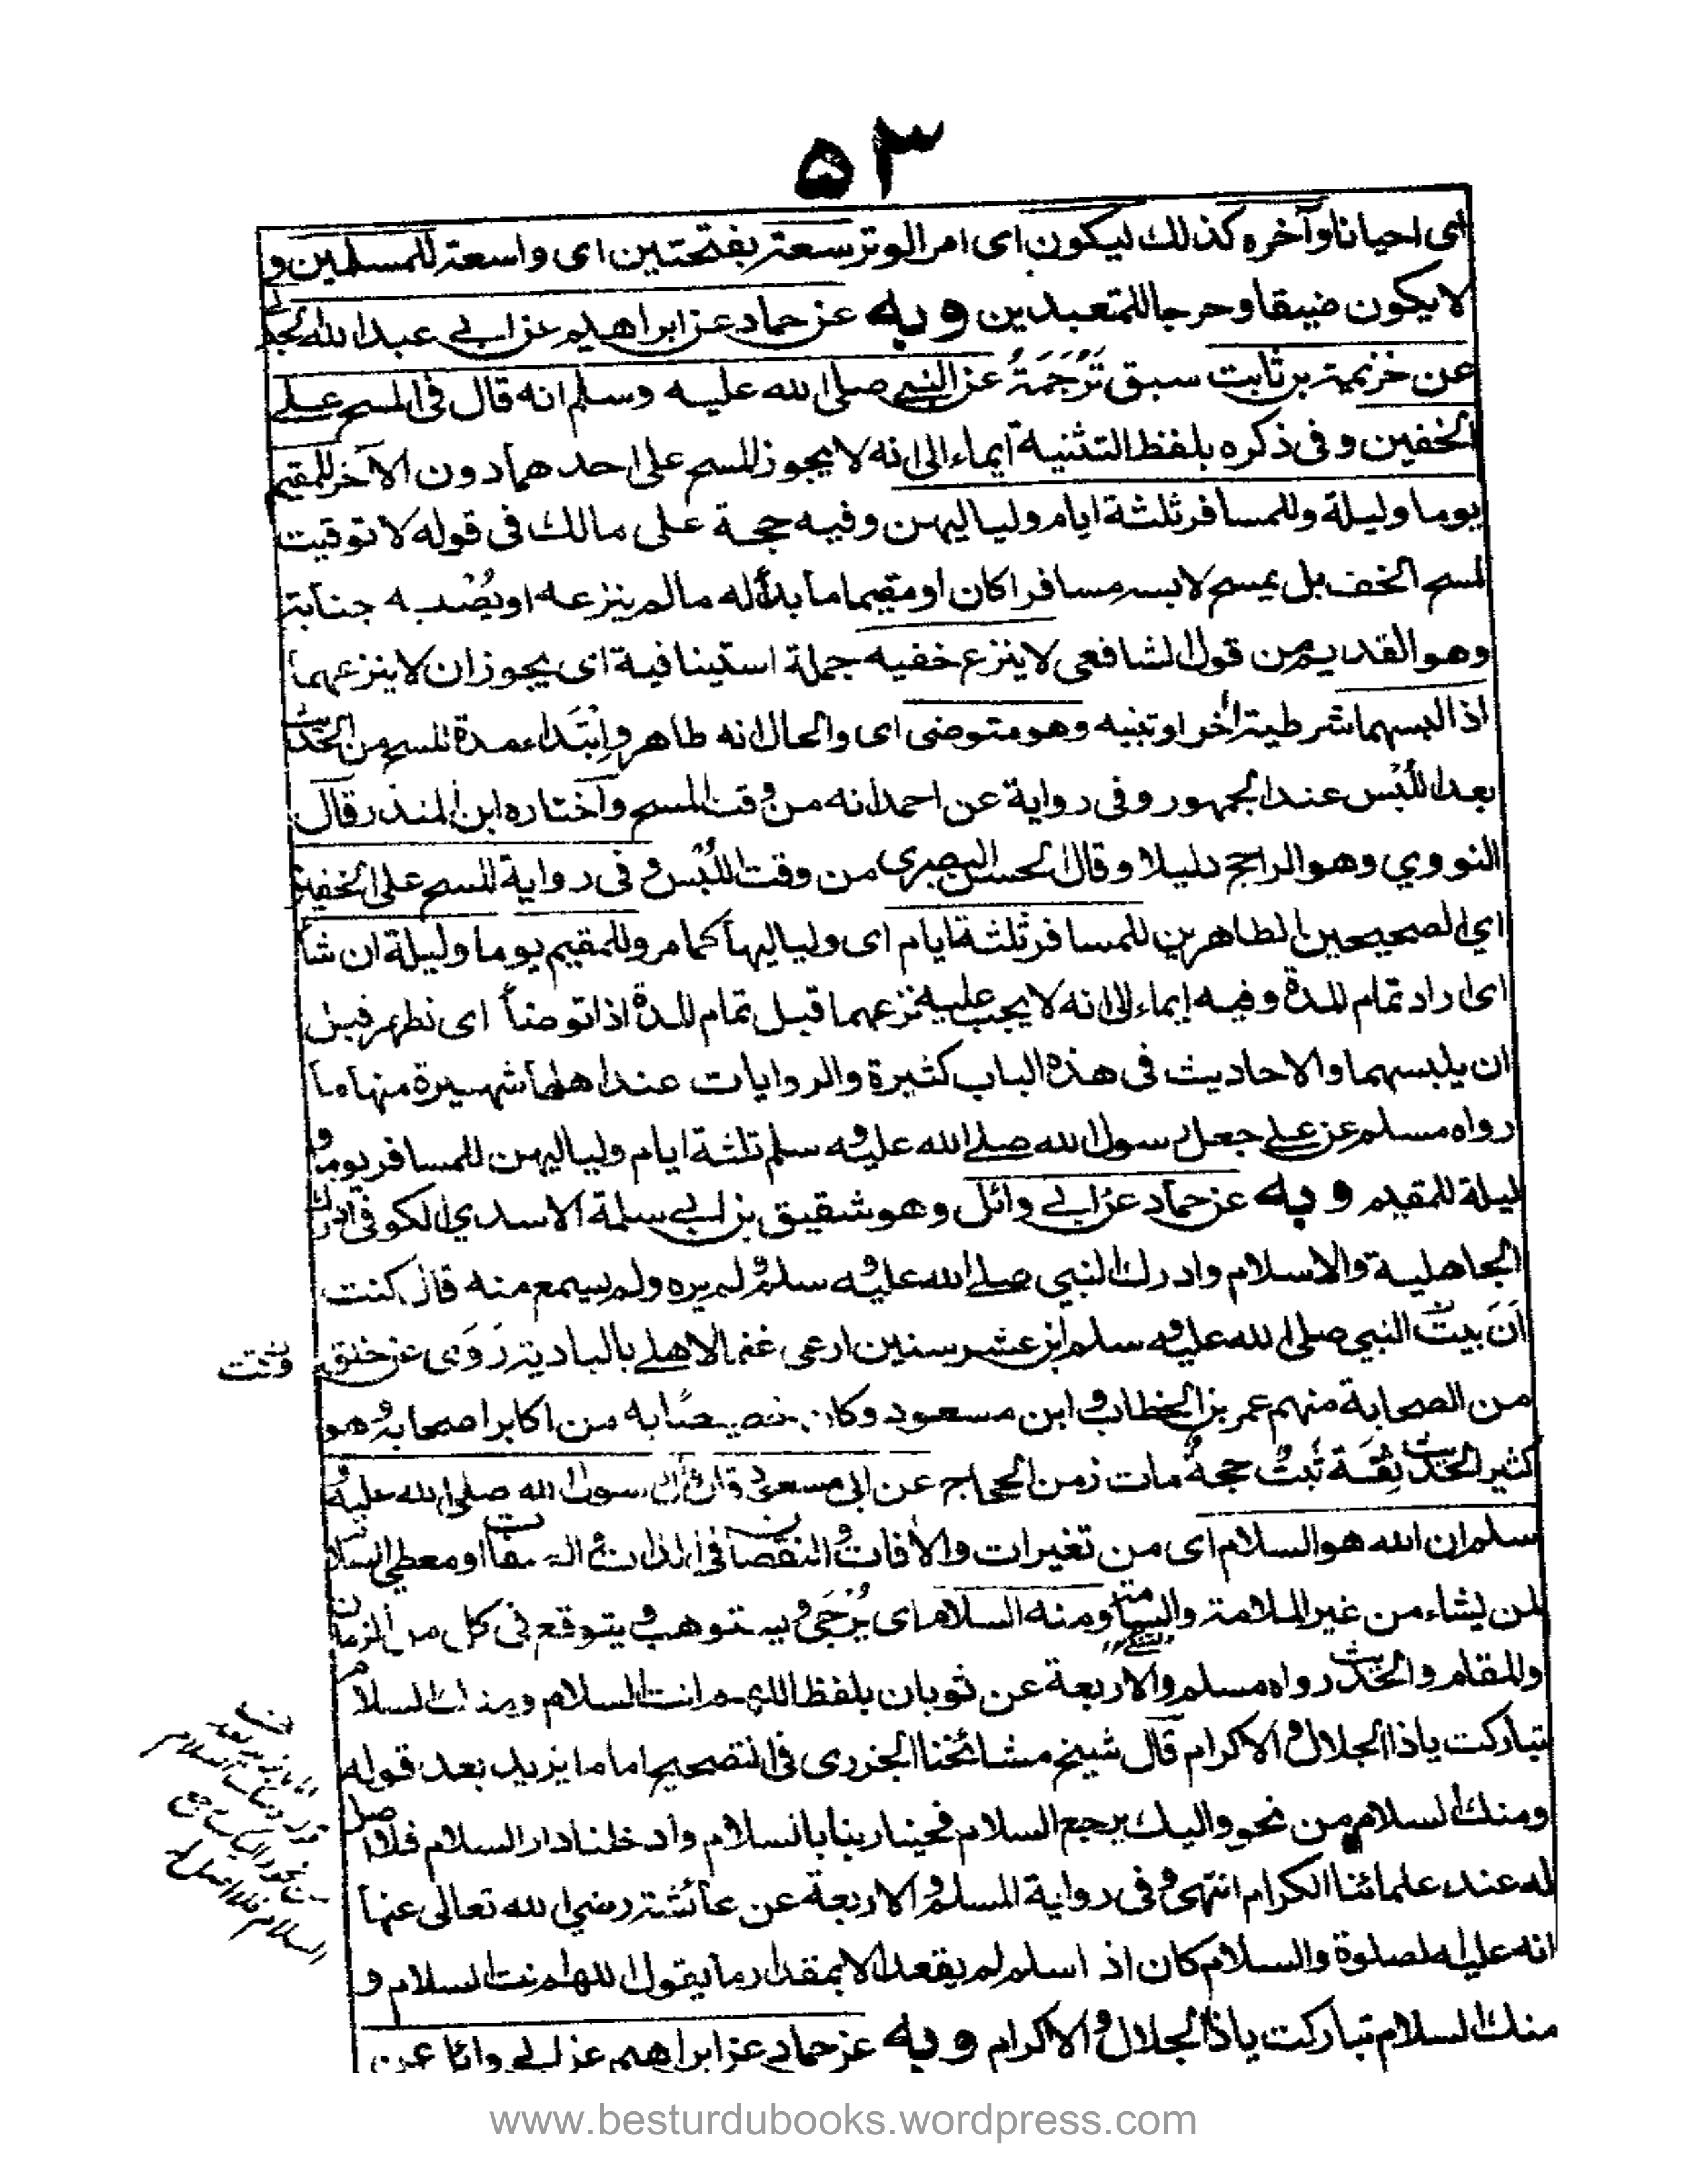 ۵۳
اى احيانا وآخره كذلك ليكون اى امر الوتر سعة بفتحتين اى واسعة للمسلمين و
لا يكون ضيقا وحرجا للمتعبدين وبه عن حماد عن ابراهيم عن ابي عبد الله الجدلي
عن خزيمة بن ثابت سبق تَرْجَمَتُهُ عن النبي صلى الله عليه وسلم انه قال فى المسح على
الخفين وفى ذكره بلفظ التثنية ايماء الى انه لا يجوز المسح على احدهما دون الآخر للمقيم
يوما وليلة وللمسافر ثلثة ايام ولياليهن وفيه حجة على مالك فى قوله لا توقيت
لمسح الخف بل يمسح لابسه مسافرا كان او مقيما ما بدأ له ما لم ينزعه او يُصبه جنابة
وهو القديم من قول الشافعى لا ينزع خفيه جملة استينافية اى يجوز ان لا ينزعهما
اذا لبسهما شرطية اخر اوتبنيه وهو متوضى اى والحال انه طاهر وابْتَداء مدة المسح من الحدث
بعد اللُبْس عند الجمهور وفى رواية عن احمد انه من وقت المسح وآختاره ابن المنذر وقال
النووي وهو الراجح دليلا وقال الحسن البصرى من وقت اللُبْس وفى رواية المسح على الخفين
اي الصحيحين الطاهرين للمسافر ثلثة ايام اى ولياليها كما مر وللمقيم يوما وليلة ان شاء
اى اراد تمام المدة وفيه ايماء الى انه لا يجب عليه نزعهما قبل تمام المدة اذا توضأ اى تطهر قبل
ان يلبسهما والاحاديث فى هذه الباب كثيرة والروايات عند اهلها شهيرة منها ما
رواه مسلم عن علي جعل رسول الله صلى الله عليه وسلم ثلثة ايام ولياليهن للمسافر يوما و
ليلة للمقيم وبه عن حماد عن ابي وائل وهو شقيق بن ابي سلمة الاسدي الكوفى ادرك
الجاهلية والاسلام وادرك النبي صلى الله عليه وسلم ولم يره ولم يسمع منه قال كنت
اَنَ بيت النبي صلى الله عليه وسلم ابن عشر سنين ارعى غنما لاهلي بالبادية رَوَى عن خلق
وقت
من الصحابة منهم عمر بن الخطاب وابن مسعود وكان خصيصًا به من اكابر اصحابه وهو
كثير الحديث ثِقَة ثَبتٌ حجةٌ مات زمن الحجاج عن ابن مسعود قال كان رسول الله صلى الله عليه و
سلم ان الله هو السلام اى من تغيرات والآفات والنقصان فى الذات والصفات او معطى السلام
لمن يشاء من غير الملامة والسامة ومنه السلام اى يُرْجَى ويستوهب ويتوقع فى كل من الزمان
والمقام والحديث رواه مسلم والاربعة عن ثوبان بلفظ اللهم انت السلام ومنك السلام
تباركت يا ذا الجلال والاكرام قال شيخ مشائخنا الجزرى فى التصحيح اما ما يزيد بعد قوله
ومنك السلام من نحو واليك يرجع السلام فحينا ربنا بالسلام وادخلنا دار السلام فلا اصل
له عند علمائنا الكرام انتهى وفى رواية المسلم والاربعة عن عائشة رضي الله تعالى عنها
انه عليه الصلوة والسلام كان اذا سلم لم يقعد الا بمقدار ما يقول اللهم انت السلام و
منك السلام تباركت يا ذا الجلال والاكرام وبه عن حماد عن ابراهيم عن ابي وائل عن
www.besturdubooks.wordpress.com